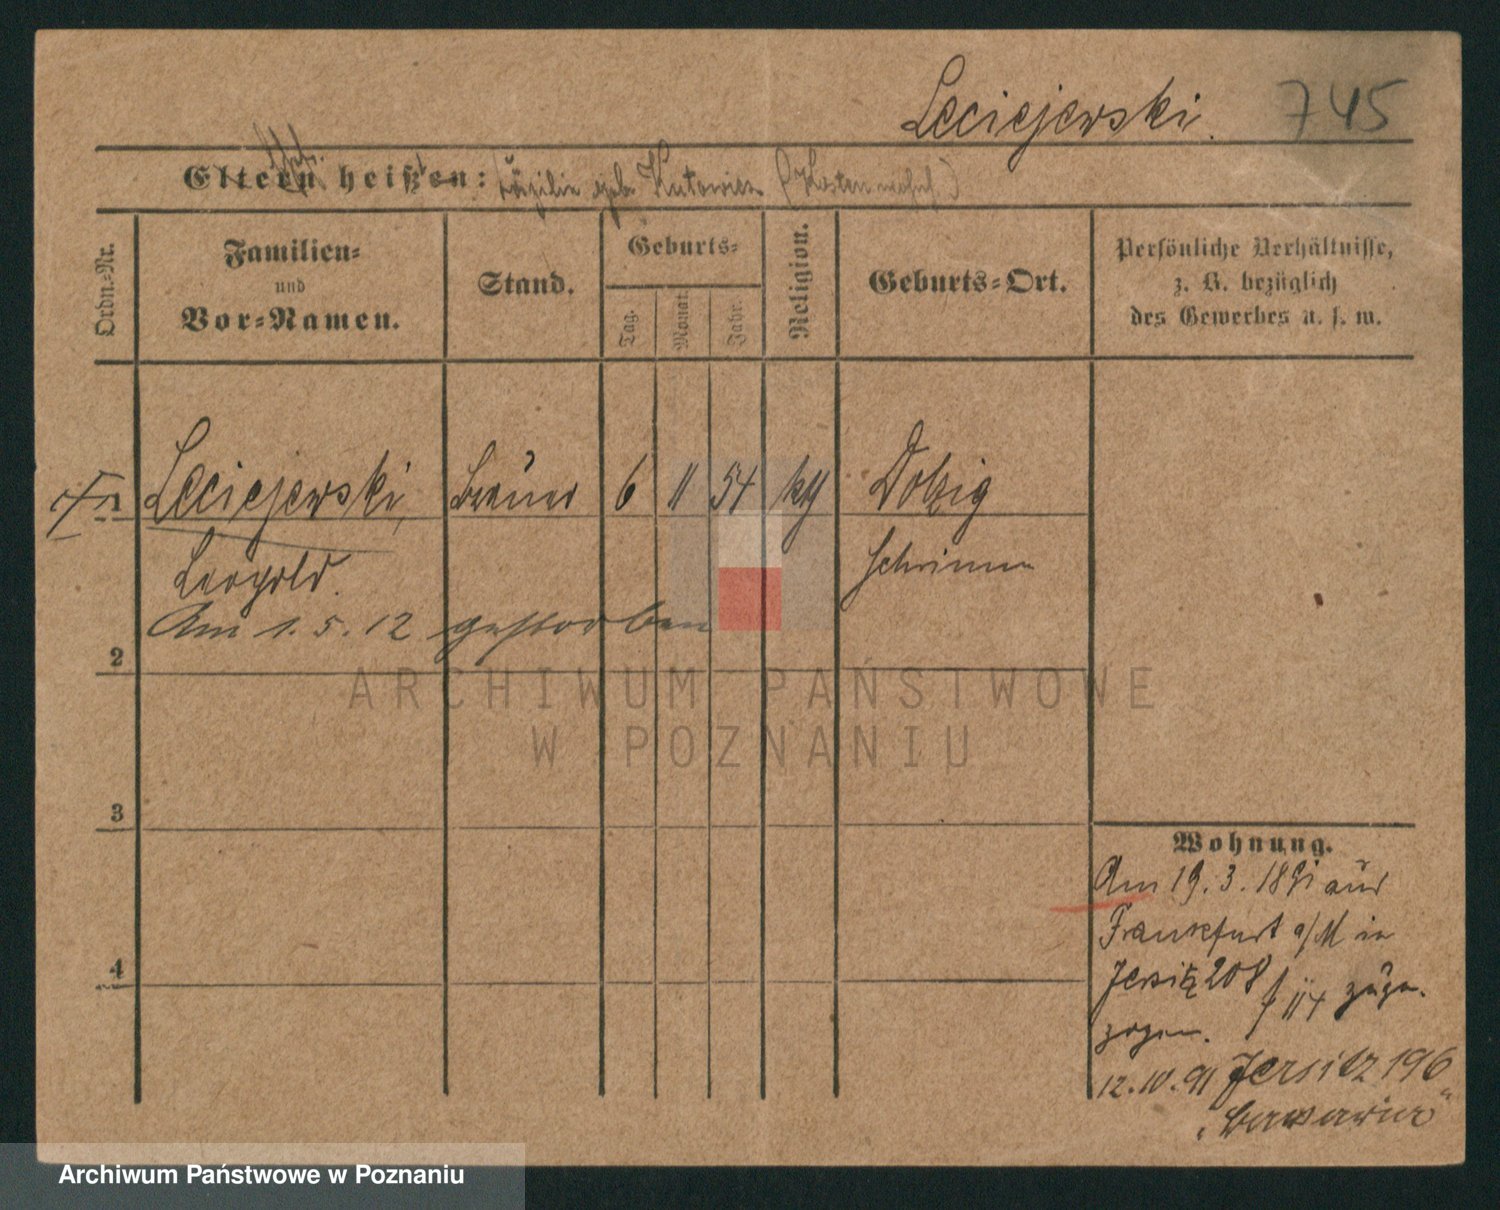 Leciejewski. 745
Eltern heißen: Cäzilia geb. Kutowicz
Ordn.-Nr.
Familien-
und
Vor-Namen.
Stand.
Geburts-
Tag.
Monat.
Jahr.
Religion.
Geburts-Ort.
Persönliche Verhältnisse,
z. B. bezüglich
des Gewerbes u. s. w.
1 Leciejewski, Brauer 6 11 54 kth Dolzig
Leopold. Schrimm
Am 1.5.12 gestorben
2
3
4
Wohnung.
Am 19.3.1891 aus
Frankfurt a/M in
Jersitz 208 zuge-
zogen.
12.10.91 Jersitz 196
ARCHIWUM PAŃSTWOWE
W POZNANIU
Archiwum Państwowe w Poznaniu